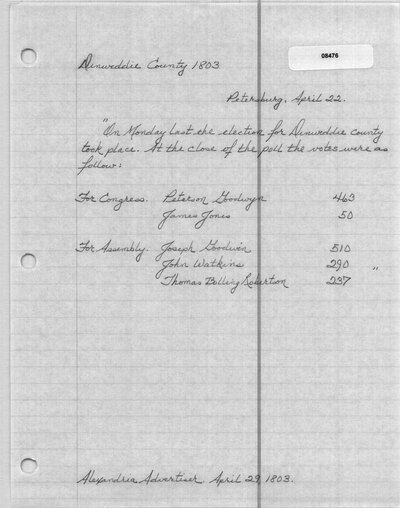 08476
Dinweddie County 1803
Petersburg, April 22.
"On Monday last the election for Dinweddie county
took place. At the close of the poll the votes were as
follow:
For Congress. Peterson Goodwyn 463
James Jones 50
For Assembly. Joseph Goodwin 510
John Watkins 290 "
Thomas Bolling Robertson 237
Alexandria Advertiser April 29, 1803.